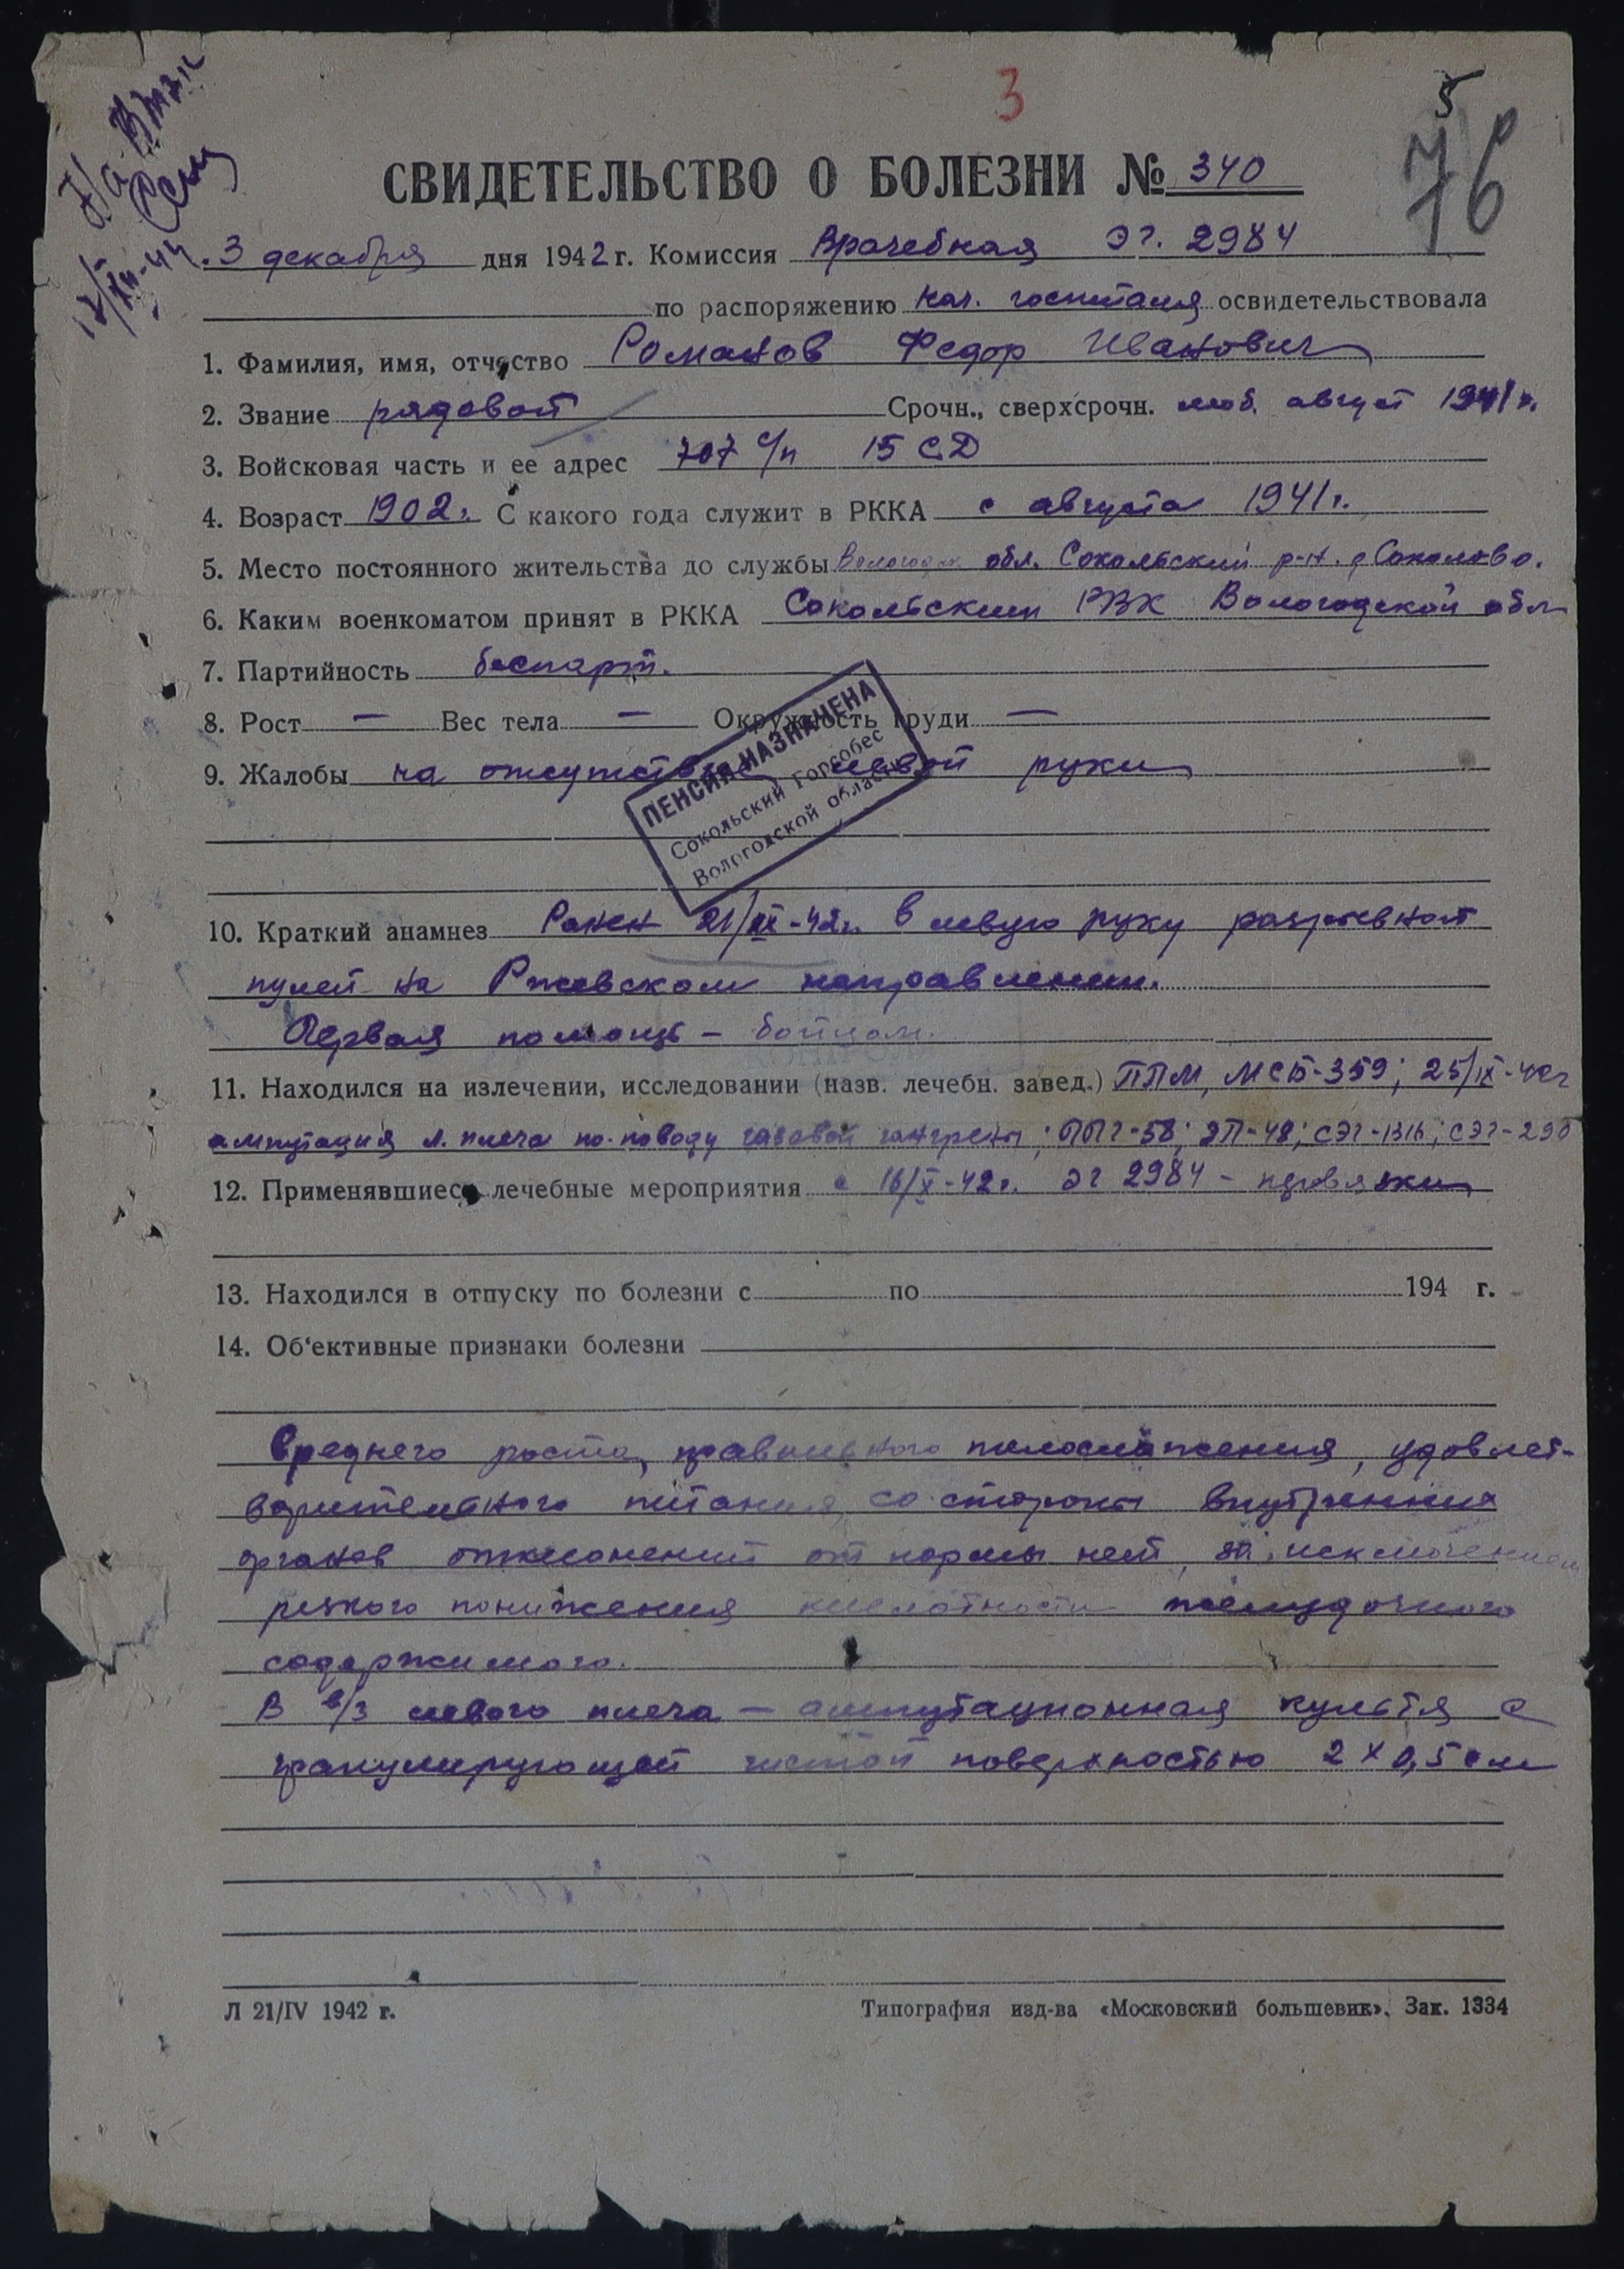 3
5
76
СВИДЕТЕЛЬСТВО О БОЛЕЗНИ № 340
3 декабря дня 1942 г. Комиссия Врачебная ЭГ. 2984
по распоряжению нач. госпиталя освидетельствовала
1. Фамилия, имя, отчество Романов Федор Иванович
2. Звание рядовой Срочн., сверхсрочн. моб. август 1941 г.
3. Войсковая часть и ее адрес 707 с/п 15 СД
4. Возраст 1902 г. С какого года служит в РККА с августа 1941 г.
5. Место постоянного жительства до службы Вологодск. обл. Сокольский р-н. д Соколово.
6. Каким военкоматом принят в РККА Сокольским РВК Вологодской обл
7. Партийность беспарт.
8. Рост — Вес тела — Окружность груди —
9. Жалобы на отсутствие левой руки
ПЕНСИЯ НАЗНАЧЕНА
Сокольский Горсобес
Вологодской области
10. Краткий анамнез Ранен 21/IX-42 г. в левую руку разрывной
пулей на Ржевском направлении.
Первая помощь – бойцом.
11. Находился на излечении, исследовании (назв. лечебн. завед.) ППМ, МСБ-359; 25/IX-42г
ампутация л. плеча по поводу газовой гангрены; ППГ-58; ЭП-48; СЭГ-1316; СЭГ-290
12. Применявшиеся лечебные мероприятия с 16/X-42 г. ЭГ 2984 – перевязки
13. Находился в отпуску по болезни с по 194 г.
14. Об'ективные признаки болезни
Среднего роста, правильного телосложения, удовлет-
ворительного питания, со стороны внутренних
органов отклонений от нормы нет, за исключением
резкого понижения кислотности желудочного
содержимого.
В в/3 левого плеча – ампутационная культя с
гранулирующей чистой поверхностью 2 х 0,5 см
Л 21/IV 1942 г. Типография изд-ва «Московский большевик». Зак. 1334